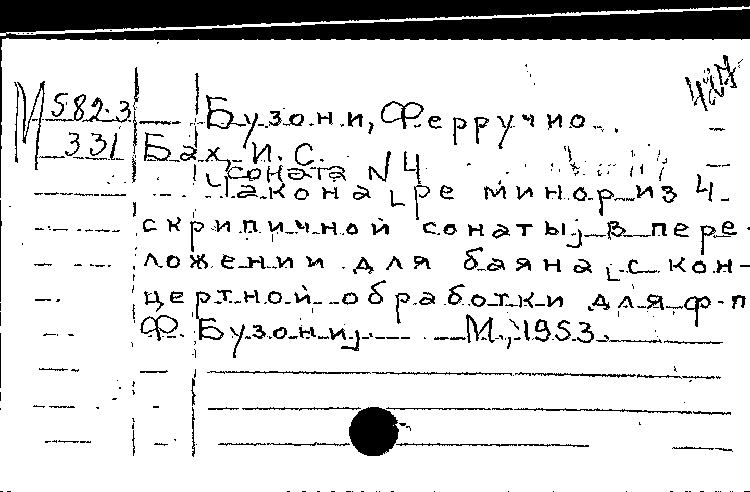 427
М 582-3
331
Бузони, Ферручио.
Бах, И. С.
соната N 4
Чакона [ре минор из 4-
скрипичной сонаты] в пере-
ложении для баяна [с кон-
цертной обработки для ф-п
Ф. Бузони]. М., 1953.